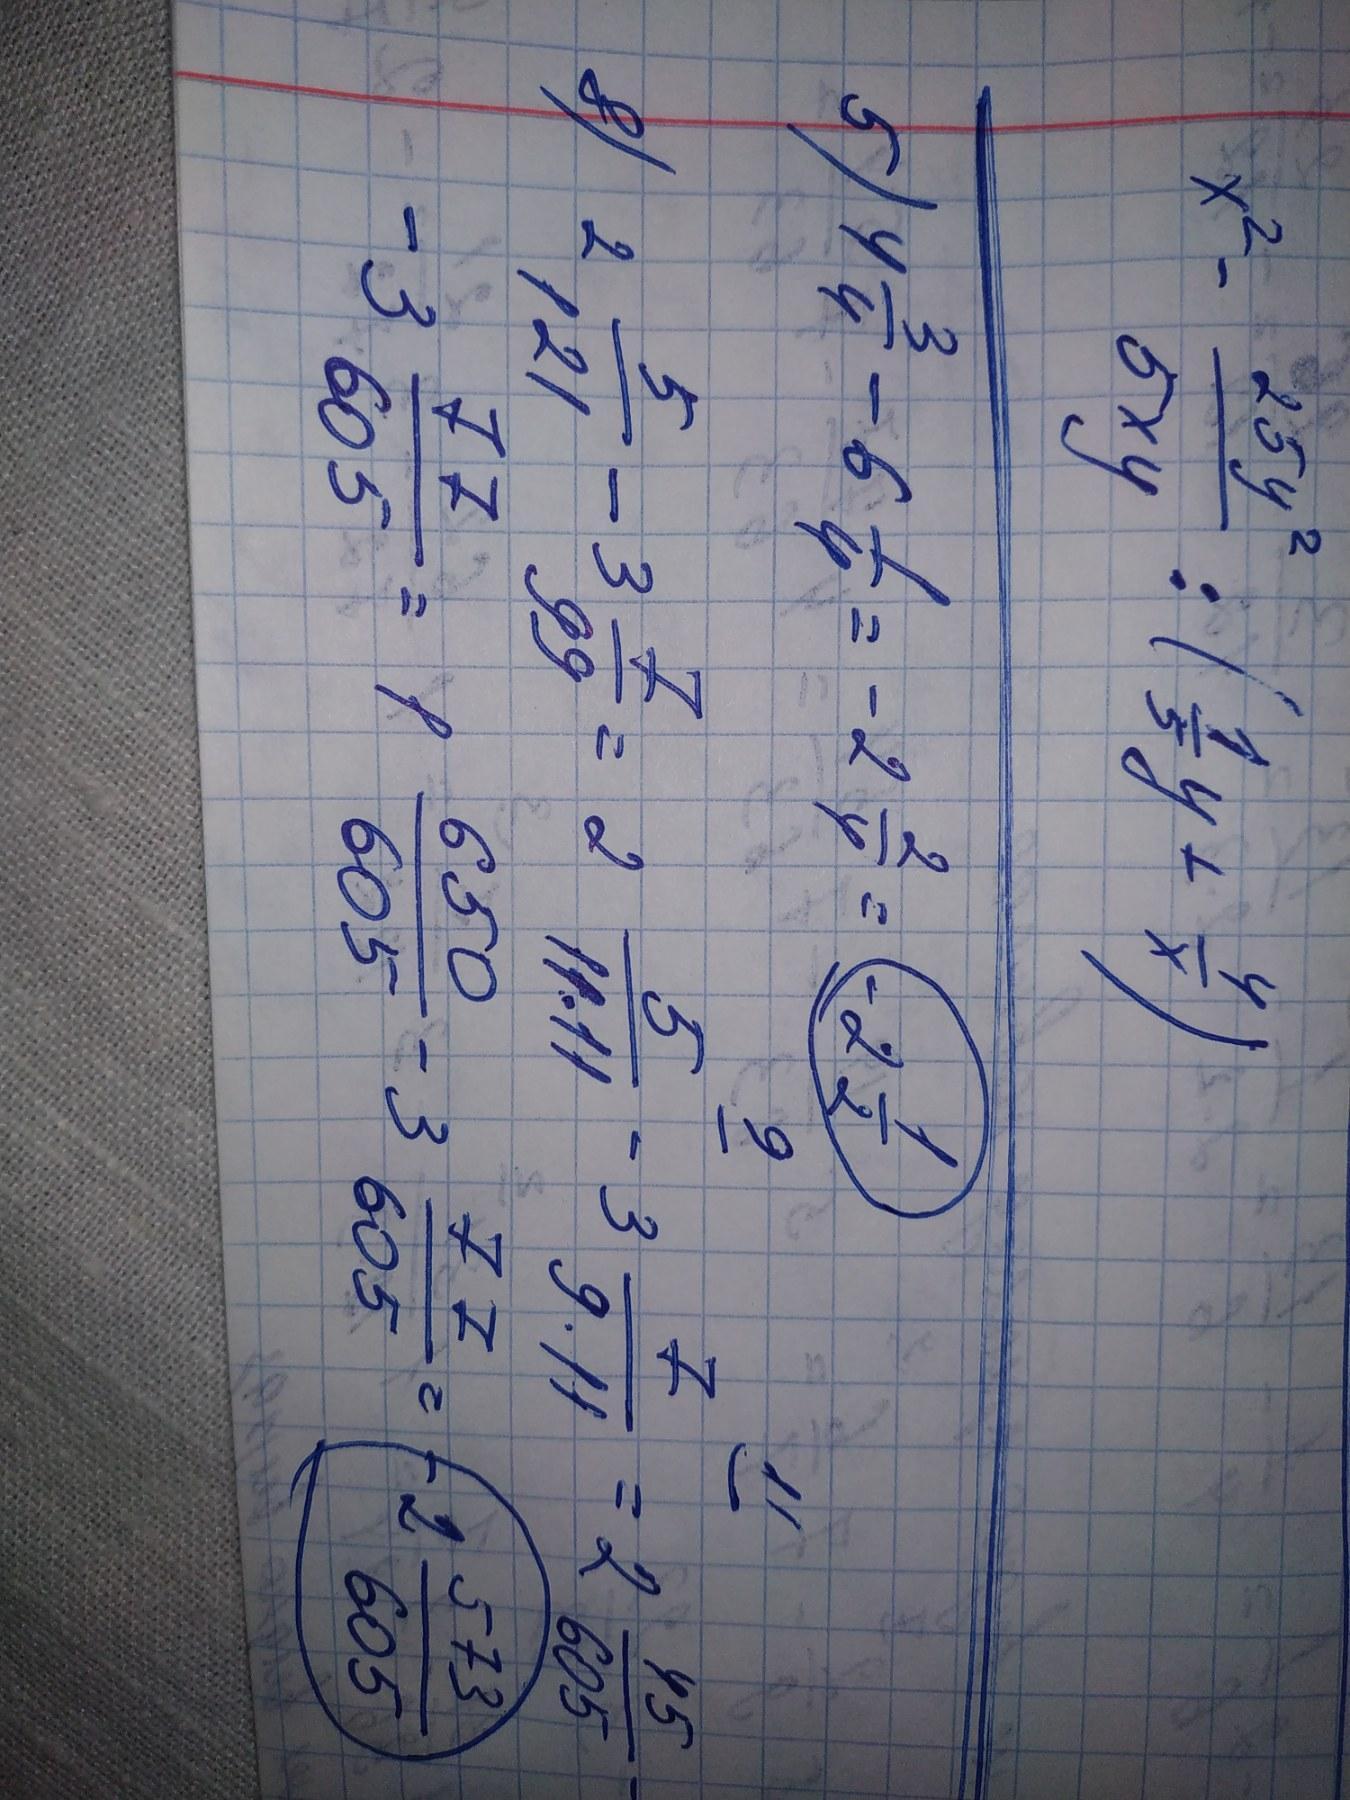 x² - 25y² / 5xy : (1/5 y + y/x)
5) 4 3/4 - 6 1/4 = -2 2/4 = -2 1/2
8) 2 5/121 - 3 7/99 = 2 5/11·11 - 3 7/9·11 = 2 45/605 -
9 11
- 3 77/605 = 1 650/605 - 3 77/605 = -2 573/605